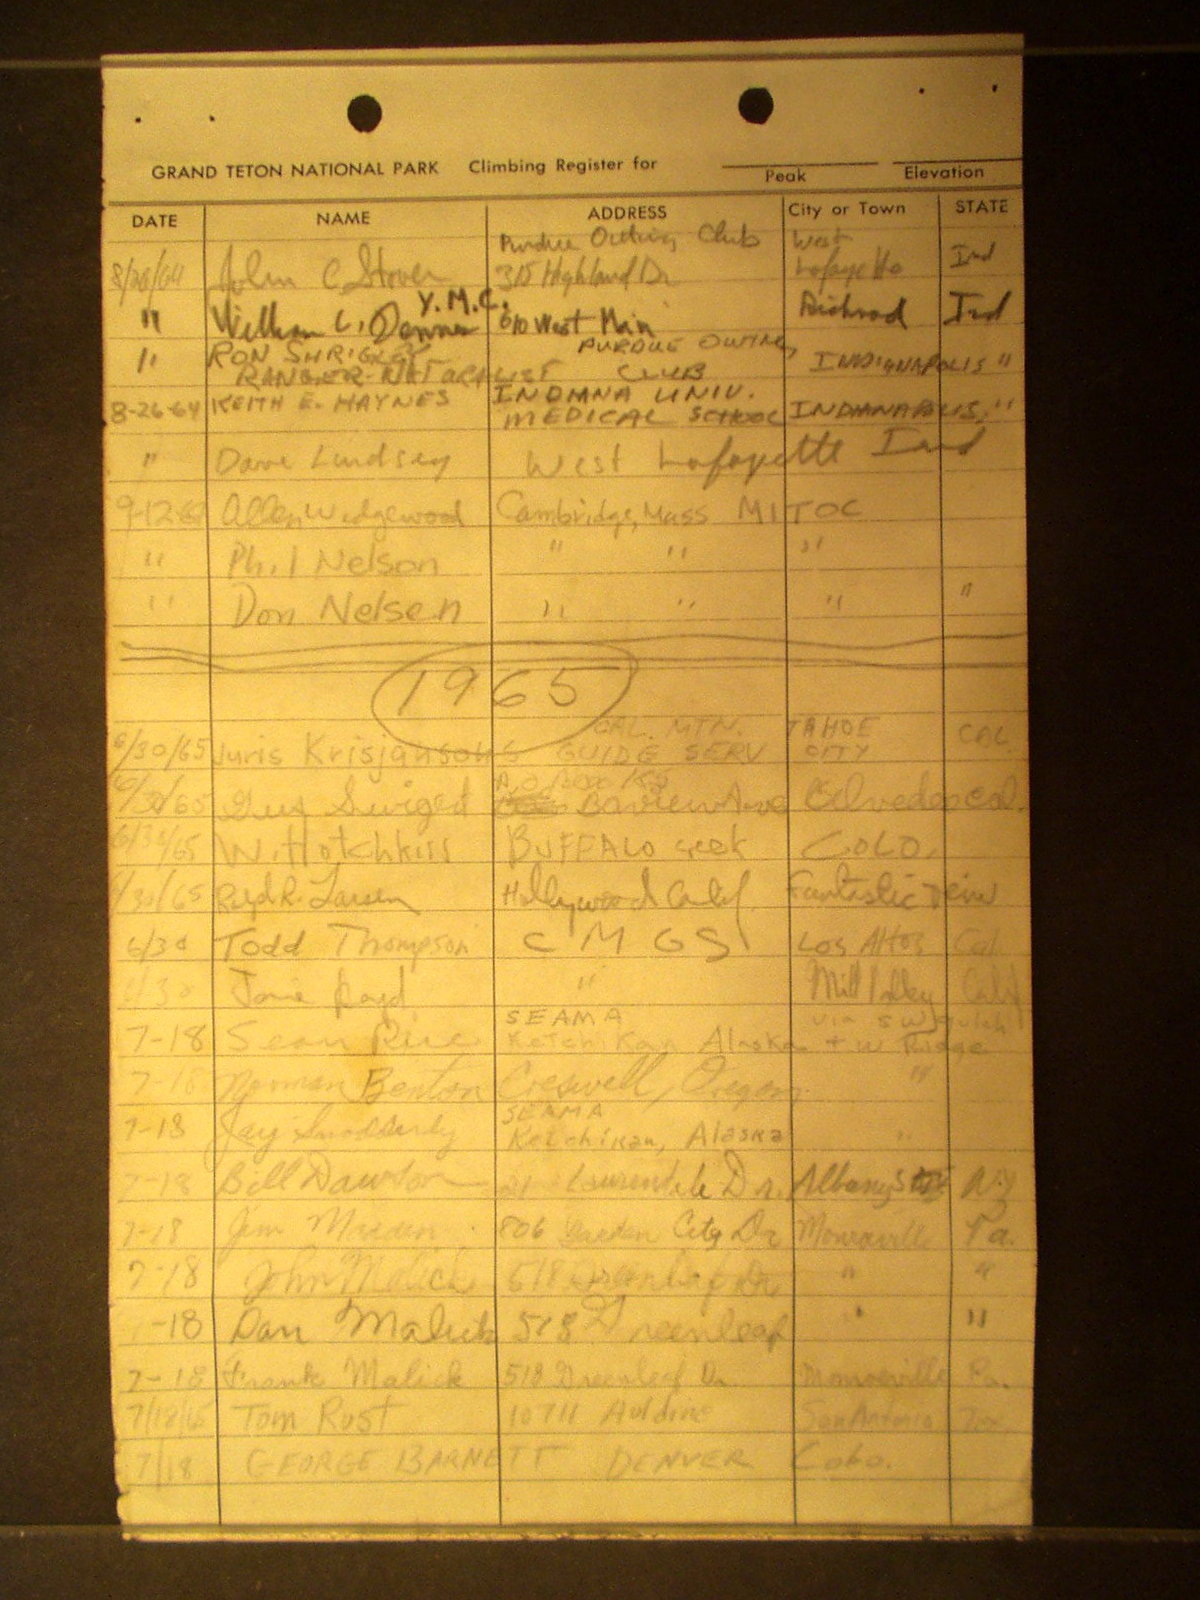 GRAND TETON NATIONAL PARK Climbing Register for
Peak Elevation
DATE NAME ADDRESS City or Town STATE
Purdue Outing Club West
John C Stover 315 Highland Dr Lafayette Ind
Y.M.C.
" William C. 610 West Main Ind
" RON SHRIGLEY PURDUE OUTING INDIANAPOLIS "
RANGER-NATURALIST CLUB
8-26-64 KEITH E. HAYNES INDIANA UNIV.
MEDICAL SCHOOL INDIANAPOLIS "
" Dave Lindsay West Lafayette Ind
9-12-64 Allen Wedgewood Cambridge, Mass MITOC
" Phil Nelson " " "
" Don Nelsen " " " "
1965
CAL. MTN. TAHOE CAL.
6/30/65 Juris Krisjansons GUIDE SERV CITY
6/30/65
6/30/65 W. Hotchkiss BUFFALO COLO.
6/30/65 Larsen Hollywood Calif. Fantastic View
6/30 Todd Thompson C M G S Los Altos Cal.
6/30 " Mill Valley Calif
SEAMA via SW
7-18 Sean Rice Ketchikan Alaska + W Ridge
7-18 Norman Benton Creswell, Oregon "
SEAMA
7-18 Jay Ketchikan, Alaska "
7-18 Bill Dawson Dr. Albany N.Y
7-18 Jim 806 Garden City Dr Monroeville Pa.
7-18 John Malick 518 Greenleaf Dr " "
7-18 Dan Malick 518 Greenleaf " "
7-18 Frank Malick 518 Greenleaf Dr Monroeville Pa.
7/18/65 Tom Rust 10711 Auldine San Antonio Tex.
7/18 GEORGE BARNETT DENVER Colo.